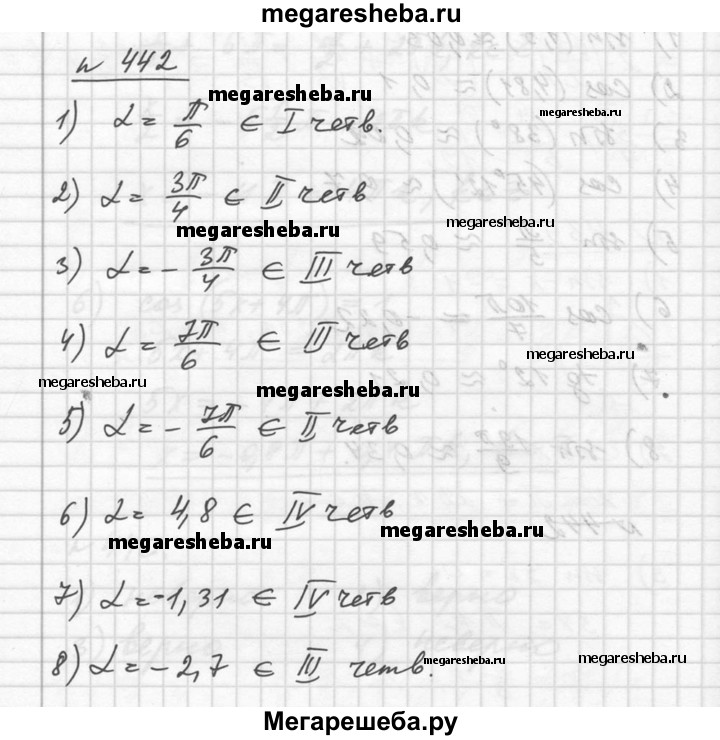 megaresheba.ru
№ 442
megaresheba.ru
1) α = π/6 ∈ I четв.
megaresheba.ru
2) α = 3π/4 ∈ II четв
megaresheba.ru
megaresheba.ru
3) α = - 3π/4 ∈ III четв
4) α = 7π/6 ∈ III четв
megaresheba.ru
megaresheba.ru
megaresheba.ru
5) α = - 7π/6 ∈ II четв
6) α = 4,8 ∈ IV четв
megaresheba.ru
megaresheba.ru
7) α = -1,31 ∈ IV четв
megaresheba.ru
8) α = - 2,7 ∈ III четв.
megaresheba.ru
megaresheba.ru
Мегарешеба.ру